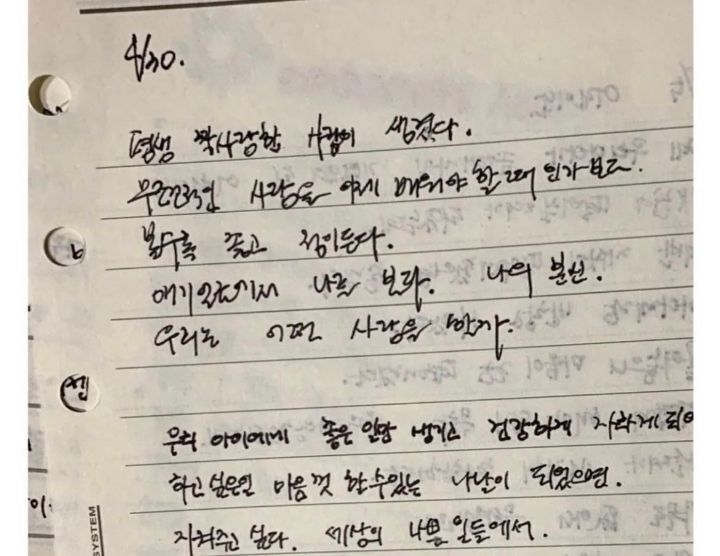 4/30.
평생 짝사랑할 사람이 생겼다.
무조건적인 사랑을 이제 배워야 할 때 인가보다.
볼수록 좋고 정이든다.
애기 일기에서 나를 보다. 나의 분신.
우리는 어떤 사랑을 할까.
우리 아이에게 좋은 일만 생기고 건강하게 자라게 되어
하고 싶은일 마음껏 할 수 있는 나날이 되었으면.
지켜주고 싶다. 세상의 나쁜 일들에서.
SYSTEM